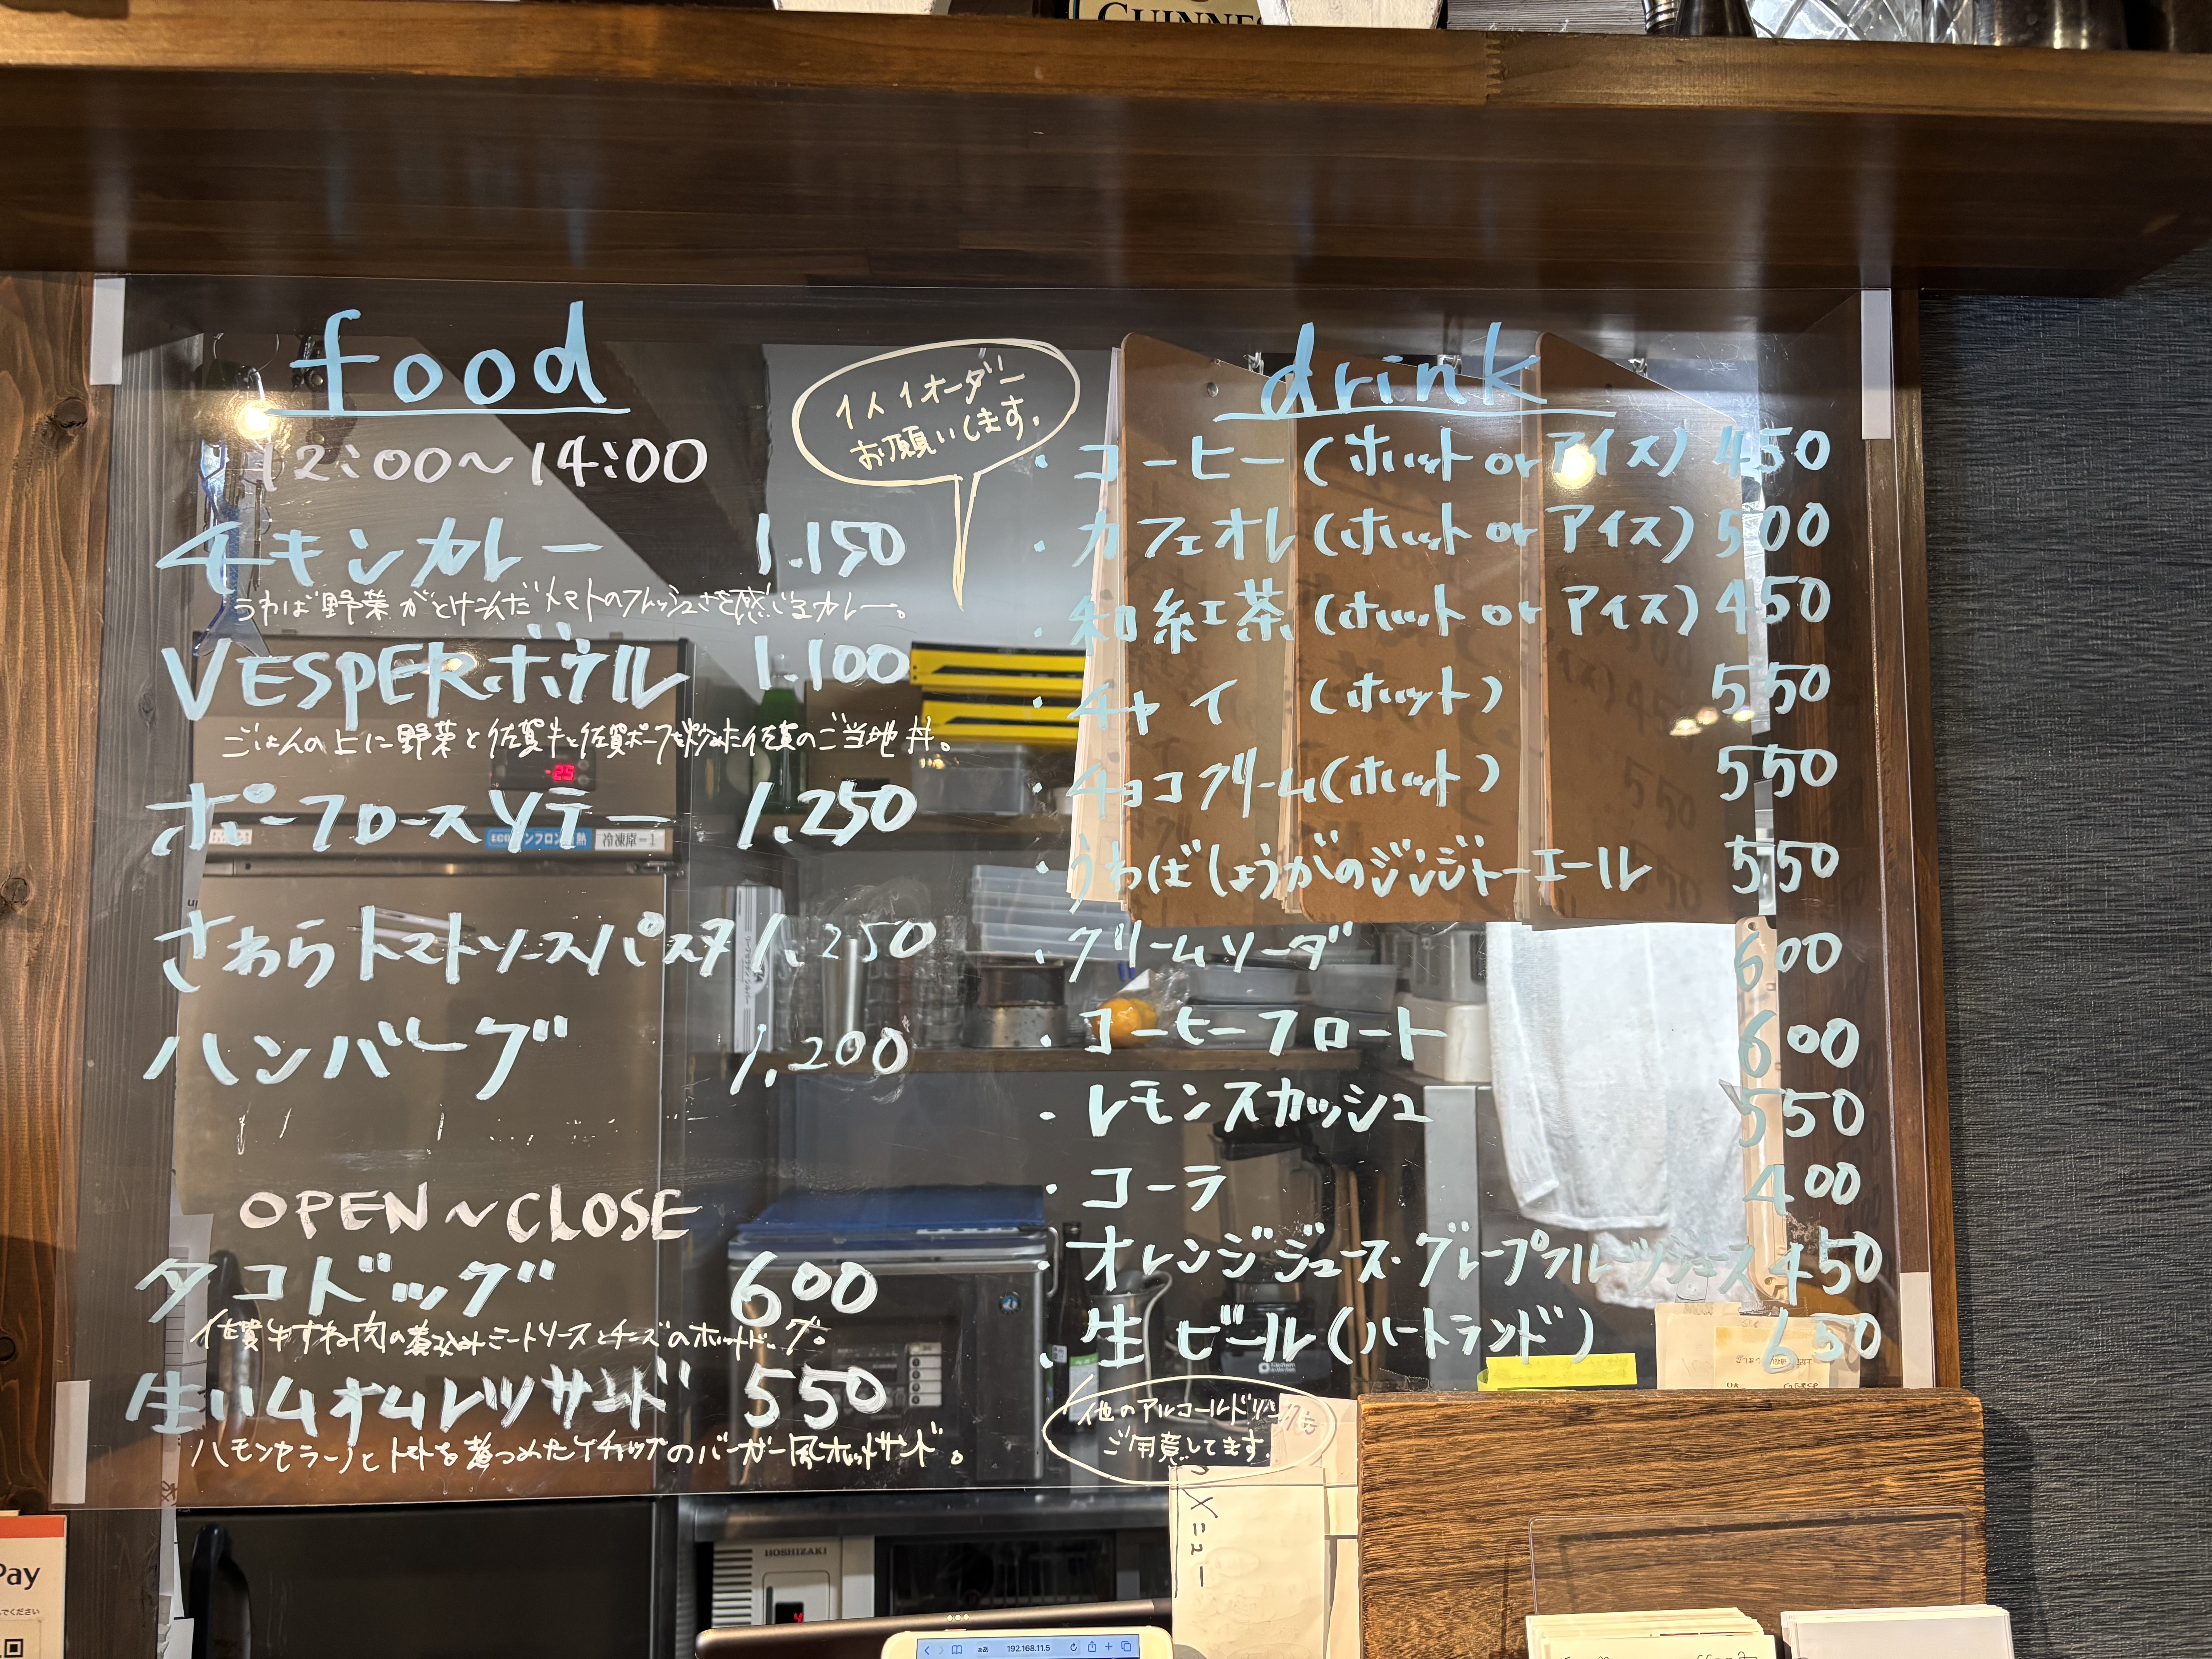 GUINNES
food
12:00〜14:00
チキンカレー 1.150
うわば野菜がとけ込んだトマトのフレッシュさを感じるカレー。
VESPERボウル 1.100
ごはんの上に野菜と佐賀牛と佐賀ポークを 佐賀のご当地丼。
ポークロースソテー 1.250
さわらトマトソースパスタ 1.250
ハンバーグ 1,200
OPEN〜CLOSE
タコドッグ 600
佐賀牛すね肉の煮込みミートソースとチーズのホットドッグ。
生ハムオムレツサンド 550
ハモンセラーノとトマトを煮つめたケチャップのバーガー風ホットサンド。
1人1オーダー
お願いします。
drink
・コーヒー(ホット or アイス) 450
・カフェオレ(ホット or アイス) 500
・和紅茶(ホット or アイス) 450
・チャイ (ホット) 550
・チョコクリーム(ホット) 550
・うわばしょうがのジンジャーエール 550
・クリームソーダ 600
・コーヒーフロート 600
・レモンスカッシュ 550
・コーラ 400
・オレンジジュース・グレープフルーツジュース 450
・生ビール(ハートランド) 650
他のアルコールドリンクも
ご用意してます。
-25
冷凍庫-1
メニュー
HOSHIZAKI
4
Pay
ください
ぁあ 192.168.11.5